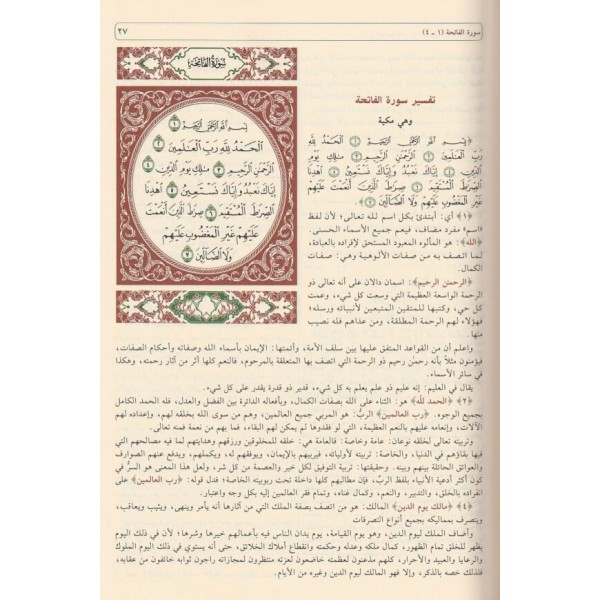 سورة الفاتحة (١ - ٤)
٢٧
سورة الفاتحة
بسم الله الرحمن الرحيم ١
الحمد لله رب العالمين ٢
الرحمن الرحيم ٣ ملك يوم الدين ٤
إياك نعبد وإياك نستعين ٥ اهدنا
الصرط المستقيم ٦ صرط الذين أنعمت
عليهم غير المغضوب عليهم
ولا الضالين ٧
تفسير سورة الفاتحة
وهي مكية
﴿بسم الله الرحمن الرحيم ١ الحمد لله
رب العالمين ٢ الرحمن الرحيم ٣ ملك يوم
الدين ٤ إياك نعبد وإياك نستعين ٥ اهدنا
الصرط المستقيم ٦ صرط الذين أنعمت
عليهم غير المغضوب عليهم ولا الضالين﴾
﴿١﴾ أي: أبتدئ بكل اسم لله تعالى؛ لأن لفظ
«اسم» مفرد مضاف، فيعم جميع الأسماء الحسنى.
﴿الله﴾: هو المألوه المعبود المستحق لإفراده بالعبادة،
لما اتصف به من صفات الألوهية وهي: صفات
الكمال.
﴿الرحمن الرحيم﴾: اسمان دالان على أنه تعالى ذو
الرحمة الواسعة العظيمة التي وسعت كل شيء، وعمت
كل حي، وكتبها للمتقين المتبعين لأنبيائه ورسله؛
فهؤلاء لهم الرحمة المطلقة، ومن عداهم فله نصيب
منها.
واعلم أن من القواعد المتفق عليها بين سلف الأمة، وأئمتها: الإيمان بأسماء الله وصفاته وأحكام الصفات،
فيؤمنون مثلاً بأنه رحمن رحيم ذو الرحمة التي اتصف بها المتعلقة بالمرحوم، فالنعم كلها أثر من آثار رحمته، وهكذا
في سائر الأسماء.
يقال في العليم: إنه عليم ذو علم يعلم به كل شيء، قدير ذو قدرة يقدر على كل شيء.
﴿٢﴾ ﴿الحمد لله﴾ هو: الثناء على الله بصفات الكمال، وبأفعاله الدائرة بين الفضل والعدل، فله الحمد الكامل
بجميع الوجوه. ﴿رب العالمين﴾ الرب: هو المربي جميع العالمين، وهم من سوى الله بخلقه لهم، وإعداده لهم
الآلات، وإنعامه عليهم بالنعم العظيمة، التي لو فقدوها لم يمكن لهم البقاء، فما بهم من نعمة فمنه تعالى.
وتربيته تعالى لخلقه نوعان: عامة وخاصة: فالعامة هي: خلقه للمخلوقين ورزقهم وهدايتهم لما فيه مصالحهم التي
فيها بقاؤهم في الدنيا، والخاصة: تربيته لأوليائه، فيربيهم بالإيمان، ويوفقهم له، ويكملهم، ويدفع عنهم الصوارف
والعوائق الحائلة بينهم وبينه. وحقيقتها: تربية التوفيق لكل خير والعصمة من كل شر، ولعل هذا المعنى هو السر في
كون أكثر أدعية الأنبياء بلفظ الرب، فإن مطالبهم كلها داخلة تحت ربوبيته الخاصة؛ فدل قوله: ﴿رب العالمين﴾ على
انفراده بالخلق، والتدبير، والنعم، وكمال غناه، وتمام فقر العالمين إليه بكل وجه واعتبار.
﴿٤﴾ ﴿مالك يوم الدين﴾ المالك: هو من اتصف بصفة الملك التي من آثارها أنه يأمر وينهى، ويثيب ويعاقب،
ويتصرف بمماليكه بجميع أنواع التصرفات
وأضاف الملك ليوم الدين، وهو يوم القيامة، يوم يدان الناس فيه بأعمالهم خيرها وشرها؛ لأن في ذلك اليوم
يظهر للخلق تمام الظهور، كمال ملكه وعدله وحكمته وانقطاع أملاك الخلائق، حتى أنه يستوي في ذلك اليوم الملوك
والرعايا والعبيد والأحرار، كلهم مذعنون لعظمته خاضعون لعزته منتظرون لمجازاته راجون ثوابه خائفون من عقابه،
فلذلك خصه بالذكر، وإلا فهو المالك ليوم الدين وغيره من الأيام.